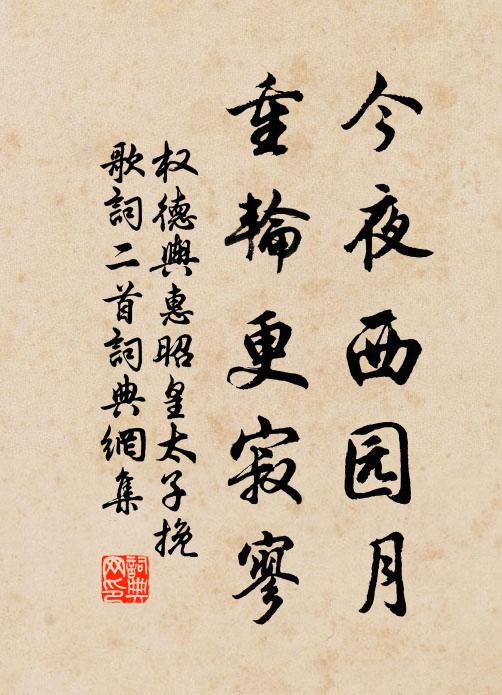 今夜西园月
重轮更寂寥
权德舆惠昭皇太子挽
歌词二首词典网集
词典
网印